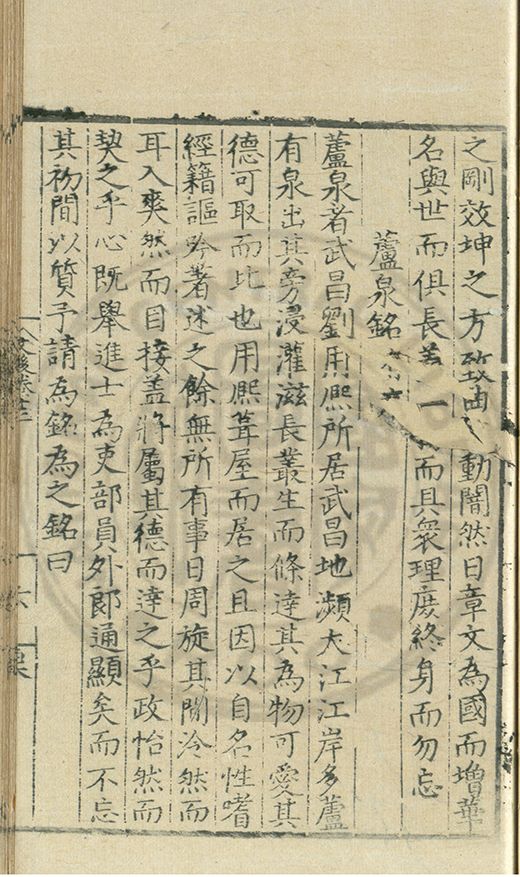 之剛效坤之方致曲動闇然日章文為國而增華
名與世而俱長一而具衆理庶終身而勿忘
蘆泉銘
蘆泉者武昌劉用熈所居武昌地瀕大江江岸多蘆
有泉出其旁浸灌滋長叢生而條達其為物可愛其
德可取而比也用熈葺屋而居之且因以自名性嗜
經籍謳吟著述之餘無所有事日周旋其間泠然而
耳入爽然而目接盖將屬其德而達之乎政怡然而
契之乎心既舉進士為吏部員外郎通顯矣而不忘
其初間以質予請為銘為之銘曰